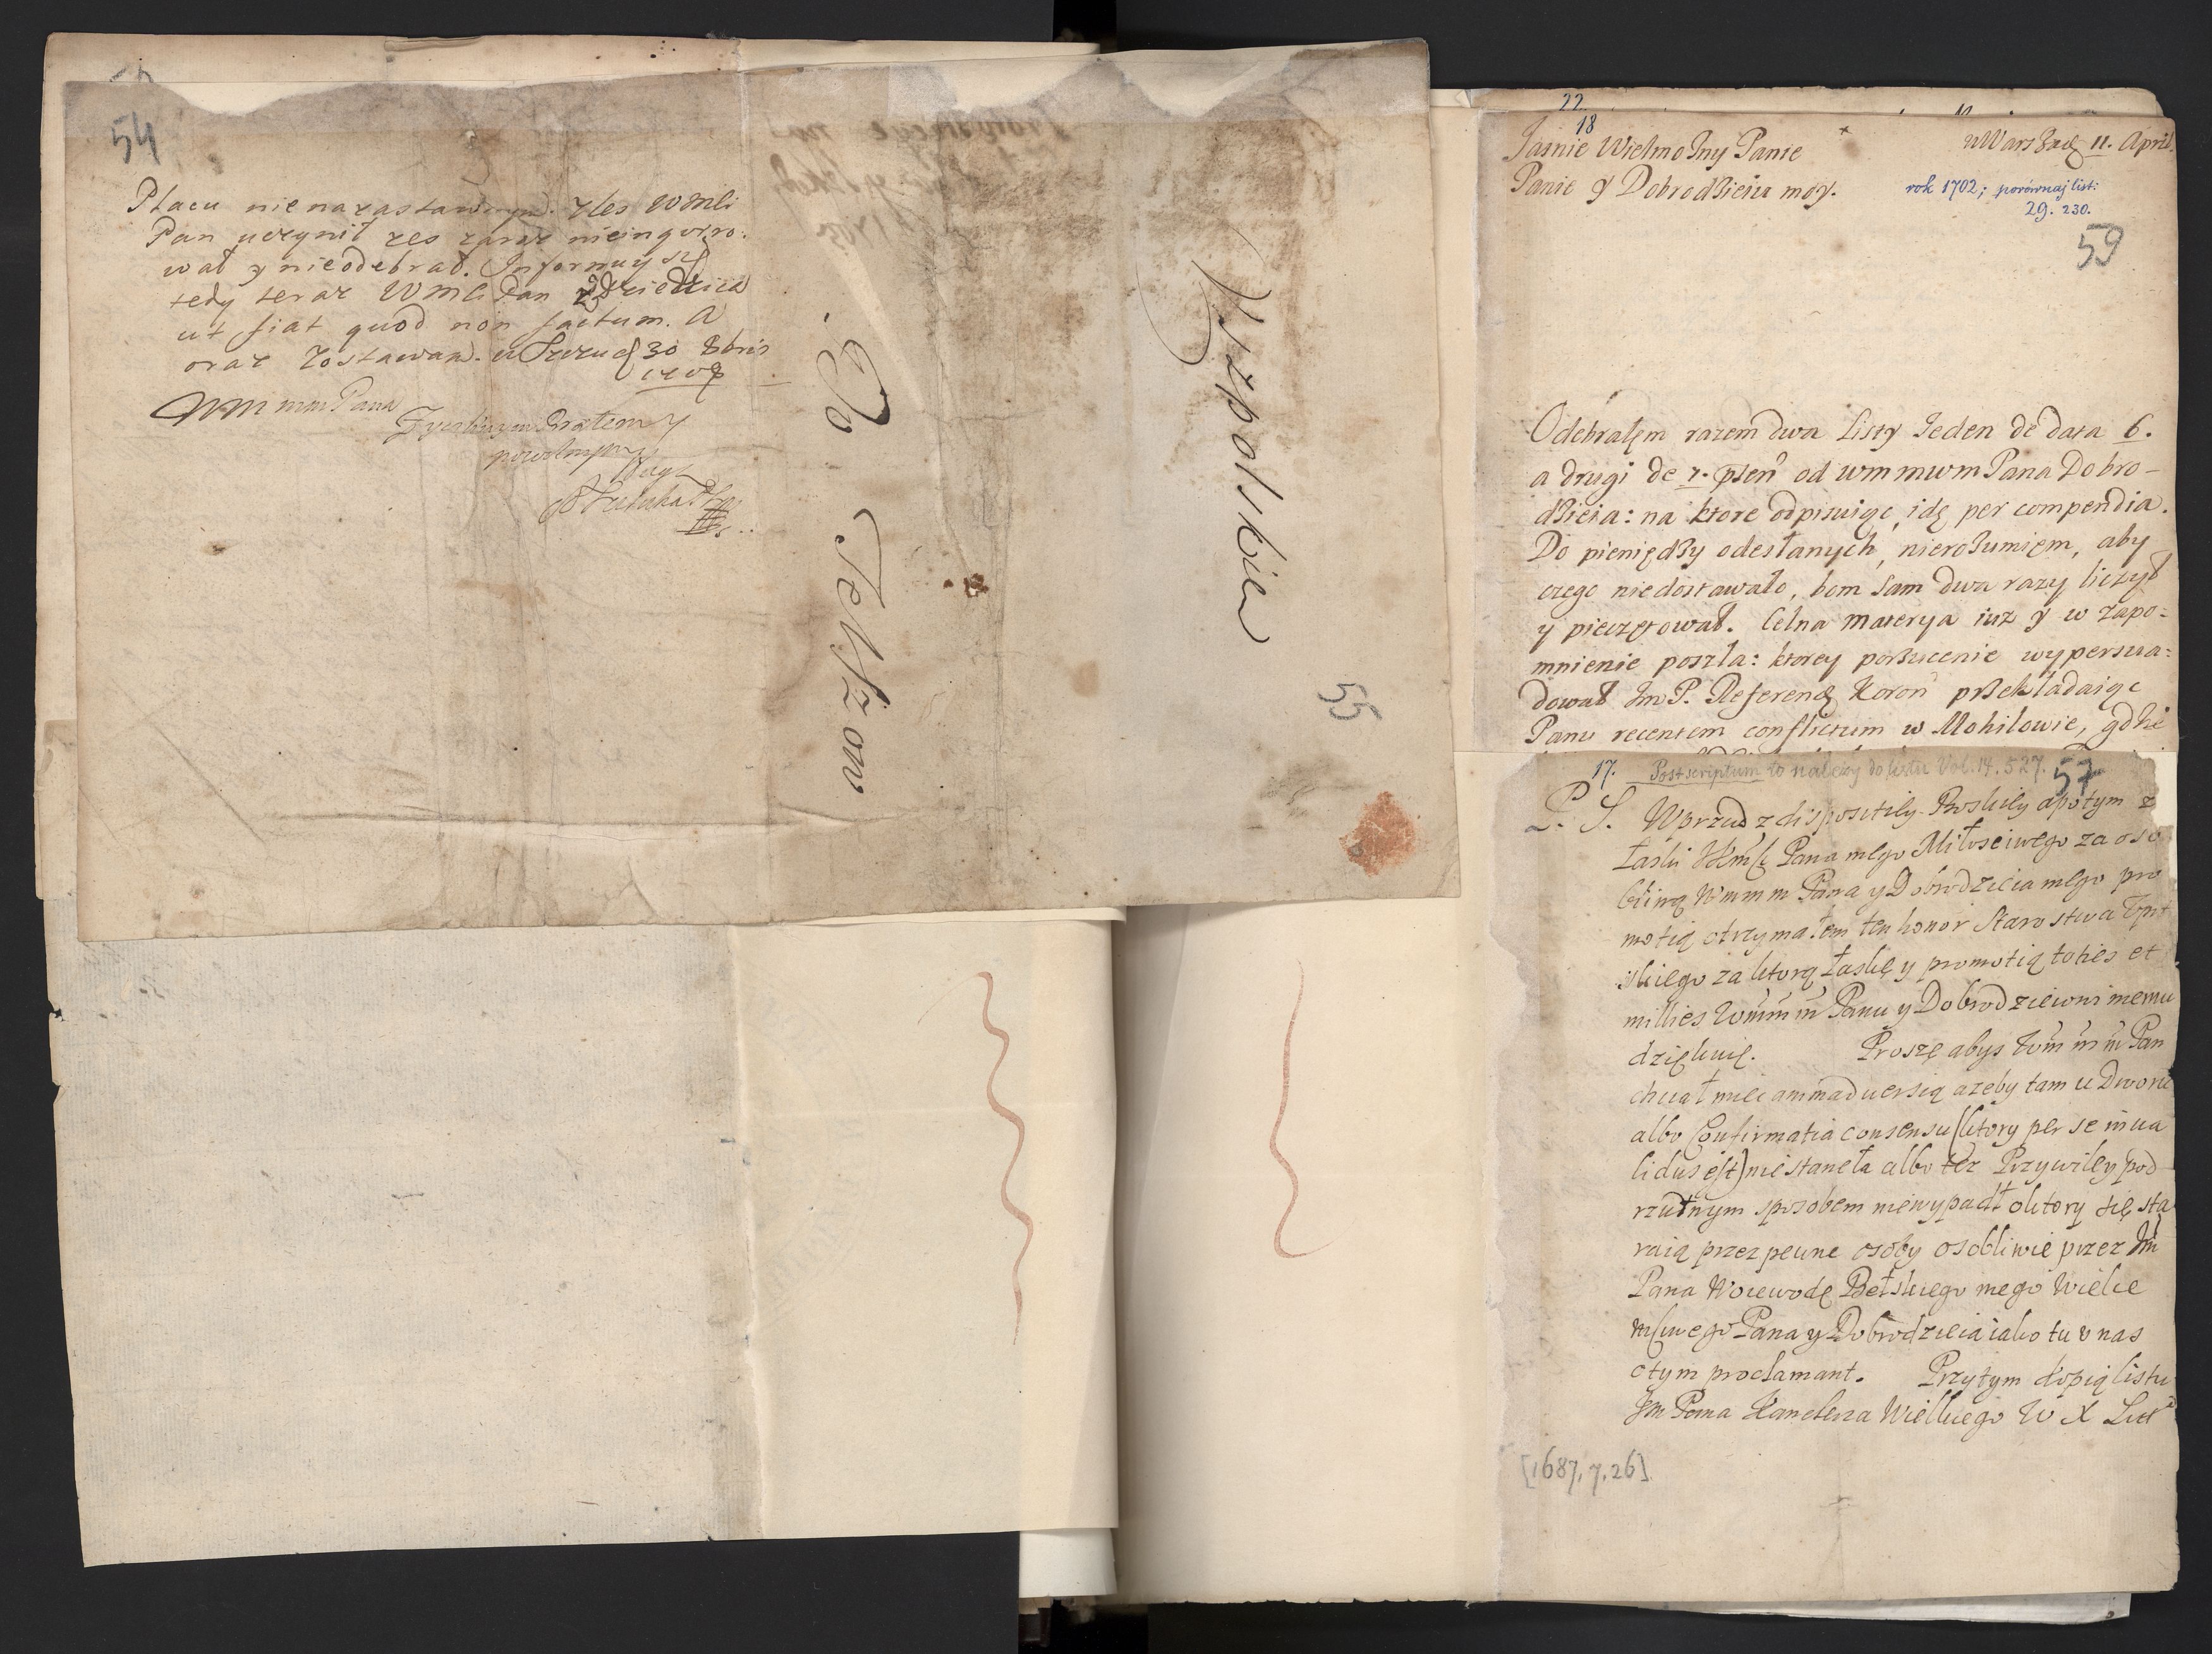 54
Placu nie na zastawnym. Zles WMći
Pan uczynił zes zaraz nieinquiro-
wał y nieodebrał. Informuy się
tedy teraz WMć Pan z Dziedzica
ut fiat quod non factum. A
oraz zostawam. 30 8bris
WM mm Pana
Bratem y
Sługą
Do Ter
Kszpolskie
55
22.
18
Jasnie Wielmożny Panie
Panie y Dobrodzieiu moy.
11. April.
rok 1702; porównaj list:
29. 230.
59
Odebrałęm razem dwa Listy Jeden de data 6.
a drugi de 7. psen od wm mwm Pana Dobro-
dzieia: na ktore odpisuiąc, idę per compendia.
Do pieniędzy odesłanych, nierozumięm, aby
czego niedostawało, bom sam dwa razy liczył
y pieczętował. Celna materya iuz y w zapo=
mnienie poszła: ktorey porzucenie wypersua=
dował Jm P. Referenđ Koron przekładaiąc
Panu recentem conflictum w Mohilowie, gdzie
17. Postscriptum to należy do listu Vol. 14. 527.
57
P. S. Wprzud z dispositily Boskiey apotym z
Łaski Pana mego Miłosciwego za oso
bliwą Wm m m Pana y Dobrodzieia mego pro
motią otrzymałem ten honor Starostwa
skiego za ktorą łaskę y promotią toties et
millies Wm m m Panu y Dobrodziewi memu
dziękuię. Proszę abys Wm m m Pan
chciał miec animaduersią azeby tam u Dworu
albo Confirmatia consensu (ktory per se inua
lidus est) niestaneła albo też Przywiley pod
rzutnym sposobem niewypadł oktory się sta
raią przez pewne osoby osobliwie przez Jm
Pana Woiewodę Bełskiego mego wielce
mściwego Pana y Dobrodzieia iako tu v nas
otym proclamant. Przytym kopią listu
Jm Pana Kanclerza Wielkiego W X Litt
[1687, 7, 26]